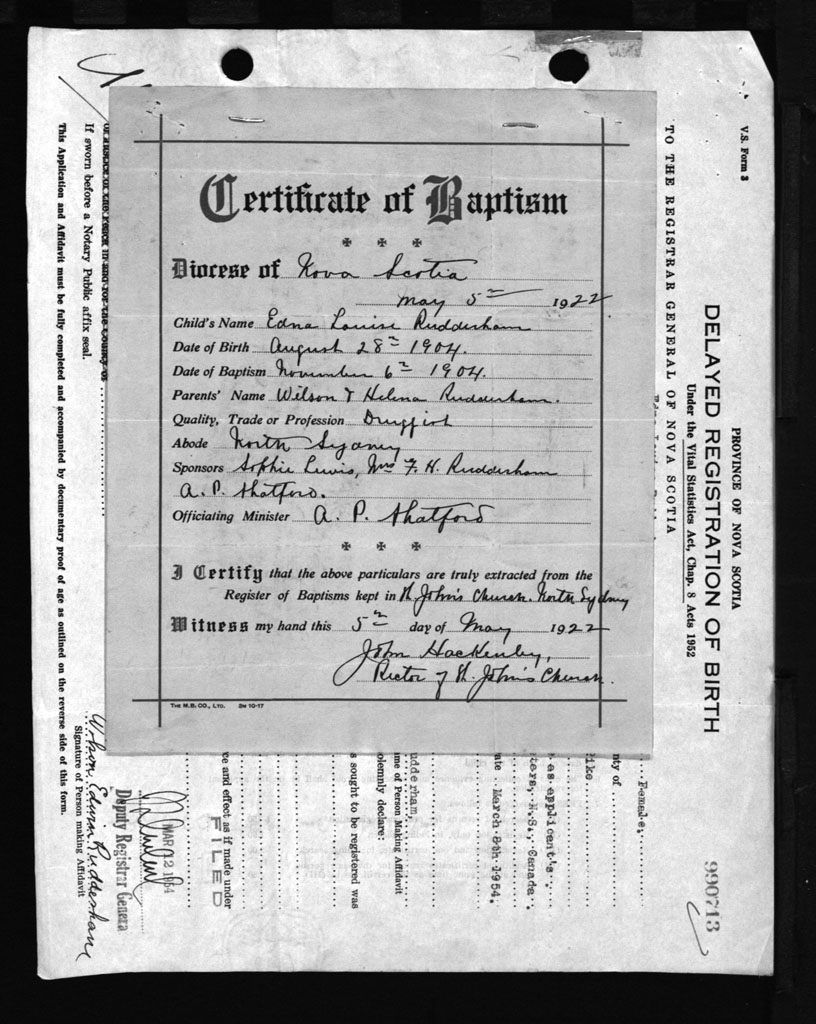 Certificate of Baptism
Diocese of Nova Scotia
May 5th 1922
Child's Name Edna Louise Rudderham
Date of Birth August 28th 1904.
Date of Baptism November 6th 1904.
Parents' Name Wilson & Helena Rudderham.
Quality, Trade or Profession Druggist
Abode North Sydney
Sponsors Sophie Lewis, Mrs F. H. Rudderham
A. P. Shatford.
Officiating Minister A. P. Shatford
I Certify that the above particulars are truly extracted from the
Register of Baptisms kept in St. John's Church. North Sydney
Witness my hand this 5th day of May 1922
John Hackenley,
Rector of St. John's Church.
THE M.B. CO., LTD. 3M 10-17
V.S. Form 3
PROVINCE OF NOVA SCOTIA
DELAYED REGISTRATION OF BIRTH
Under the Vital Statistics Act, Chap. 8 Acts 1952
TO THE REGISTRAR GENERAL OF NOVA SCOTIA
990713
Female.
nty of
like
as applicant's
ters, N.S., Canada.
ate March 8th 1954.
udderham,
me of Person Making Affidavit
olemnly declare:
s sought to be registered was
ce and effect as if made under
FILED
MAR 12 1954
Deputy Registrar Genera
Wilson Edwin Rudderham
Signature of Person making Affidavit
If sworn before a Notary Public affix seal.
This Application and Affidavit must be fully completed and accompanied by documentary proof of age as outlined on the reverse side of this form.